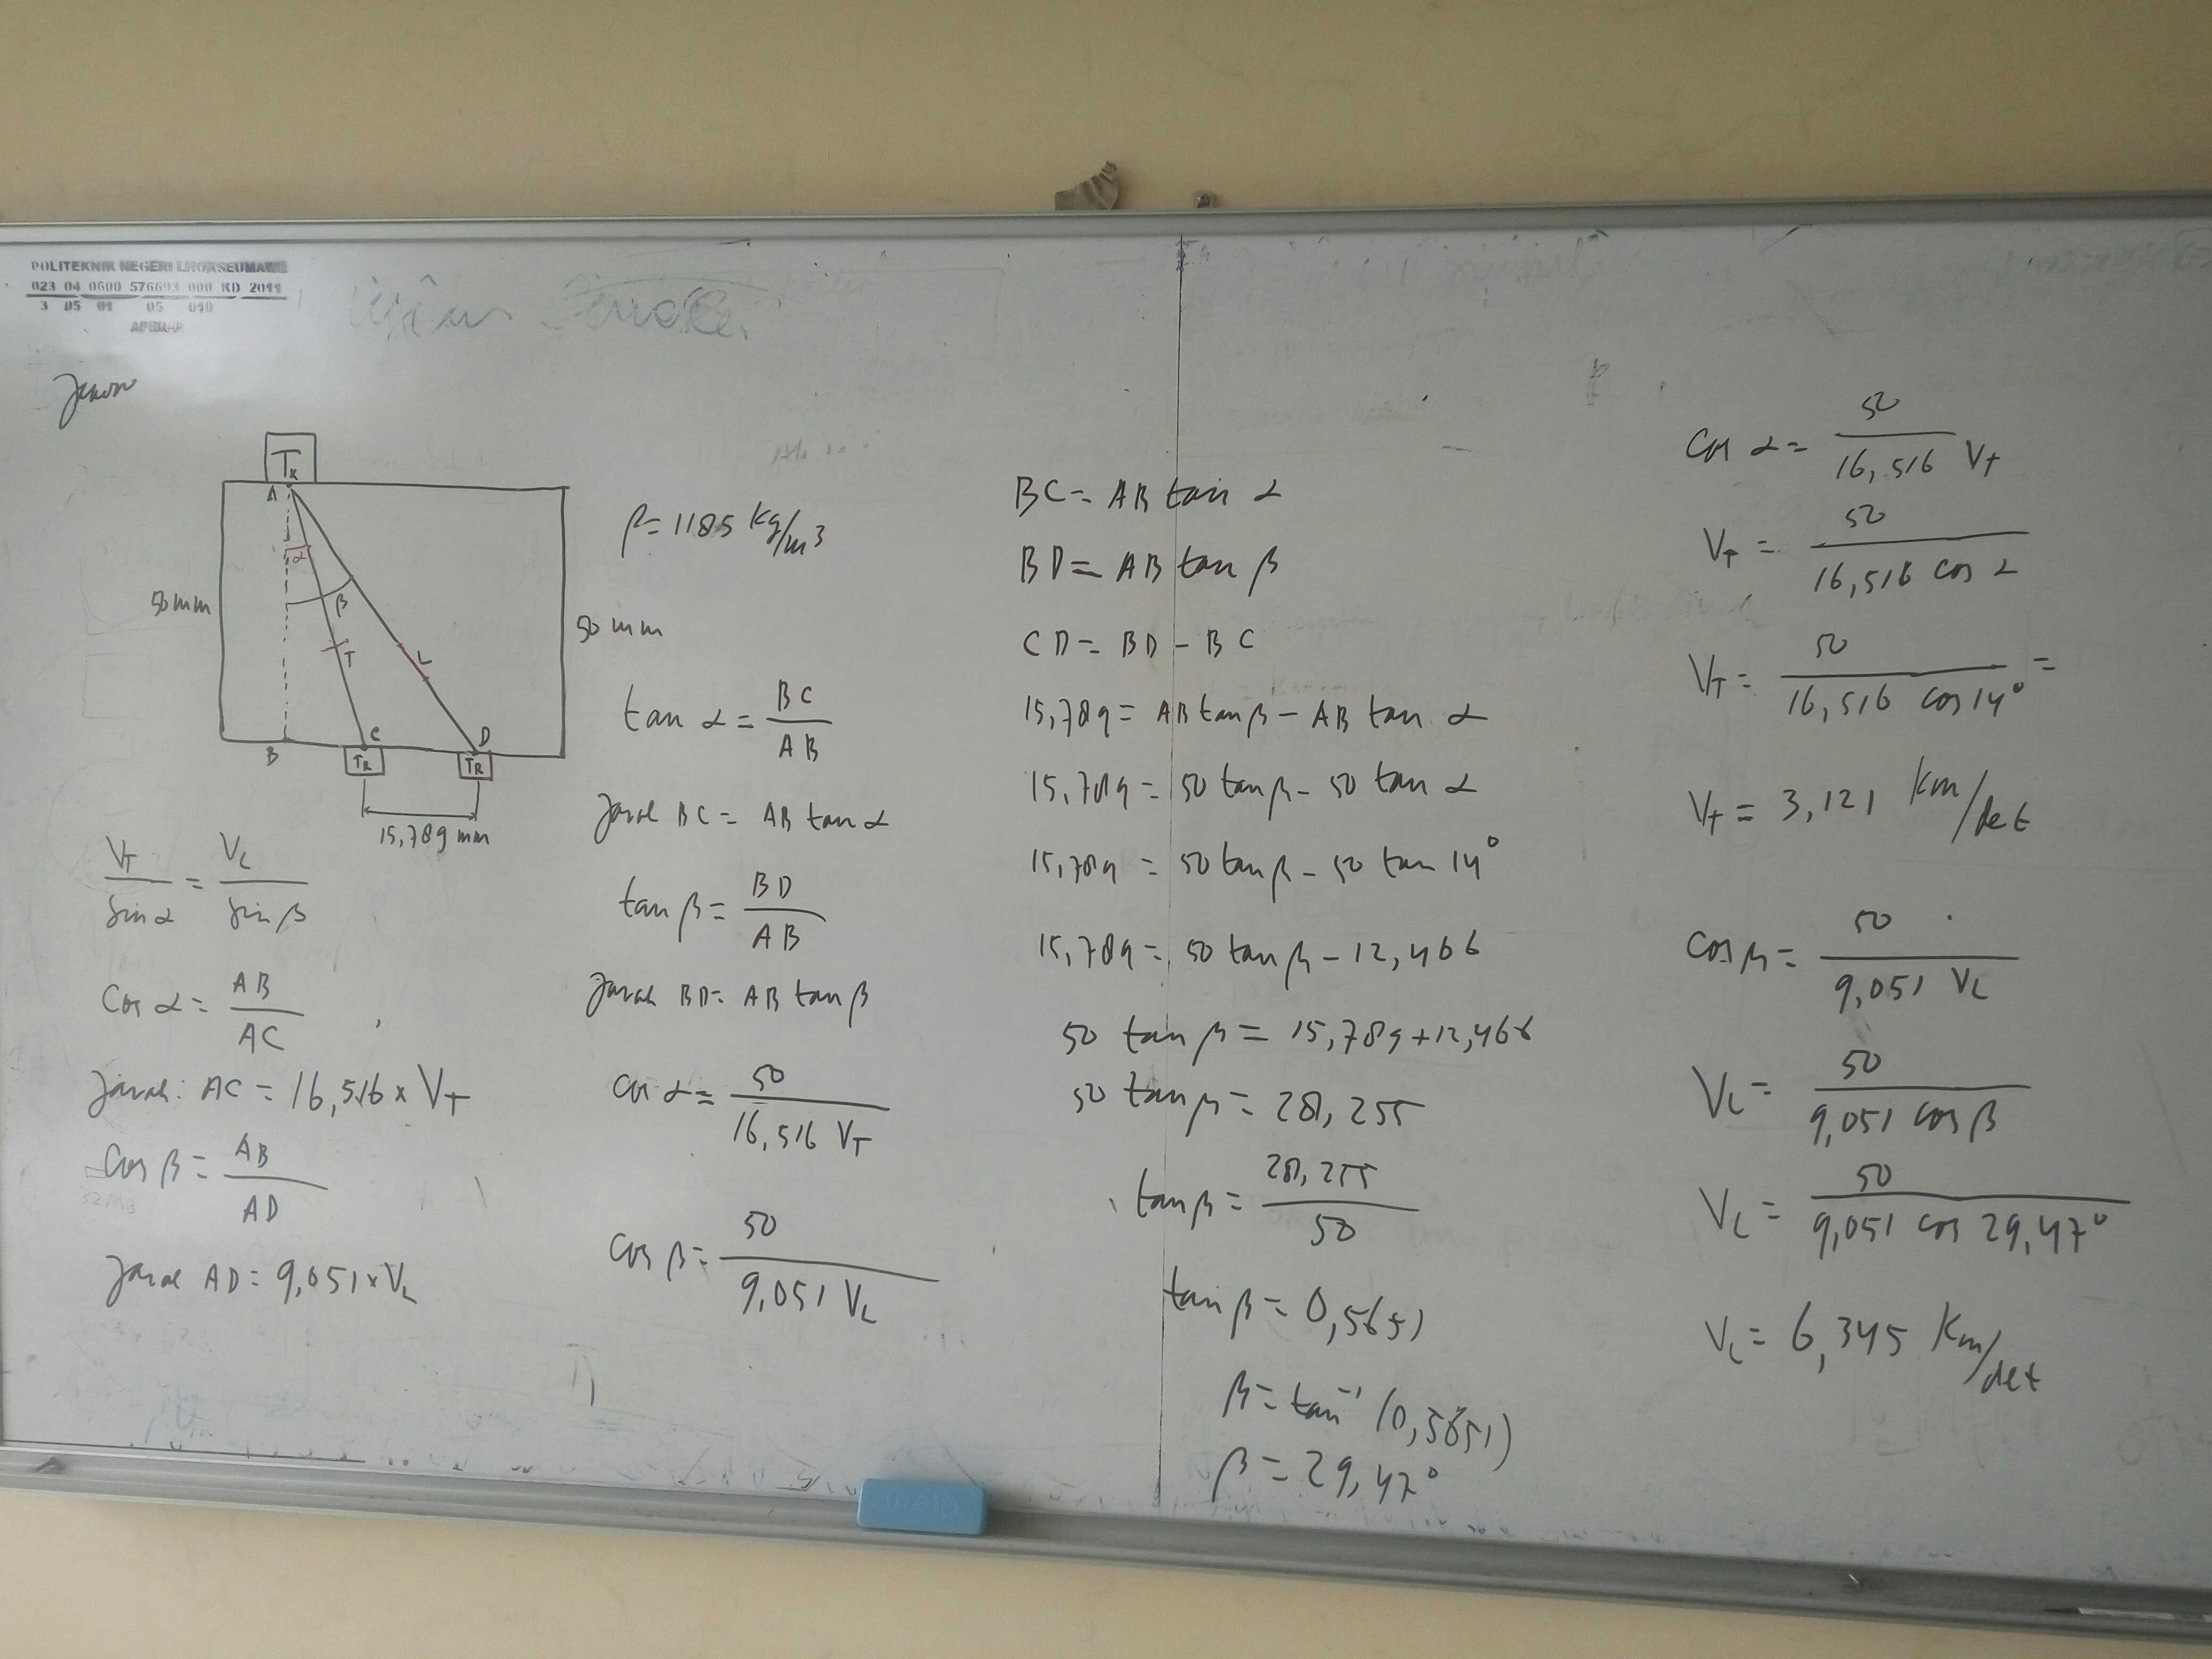 POLITEKNIK NEGERI LHOKSEUMAWE
023 04 0600 576693 000 KD 2011
3 05 01 05 010
Ujian
Jawab
Tx
A
α
β
50 mm
50 mm
T
L
B
C
D
TR
TR
15,789 mm
VT / sin α = VL / sin β
Cos α = AB / AC
Jarak: AC = 16,516 x VT
Cos β = AB / AD
Jarak AD = 9,051 x VL
ρ = 1185 kg/m3
tan α = BC / AB
Jarak BC = AB tan α
tan β = BD / AB
Jarak BD = AB tan β
cos α = 50 / 16,516 VT
cos β = 50 / 9,051 VL
BC = AB tan α
BD = AB tan β
CD = BD - BC
15,789 = AB tan β - AB tan α
15,789 = 50 tan β - 50 tan α
15,789 = 50 tan β - 50 tan 14°
15,789 = 50 tan β - 12,466
50 tan β = 15,789 + 12,466
50 tan β = 28,255
tan β = 28,255 / 50
tan β = 0,5651
β = tan⁻¹ (0,5651)
β = 29,47°
Cos α = 50 / 16,516 VT
VT = 50 / 16,516 cos α
VT = 50 / 16,516 cos 14° =
VT = 3,121 km/det
Cos β = 50 / 9,051 VL
VL = 50 / 9,051 cos β
VL = 50 / 9,051 cos 29,47°
VL = 6,345 Km/det